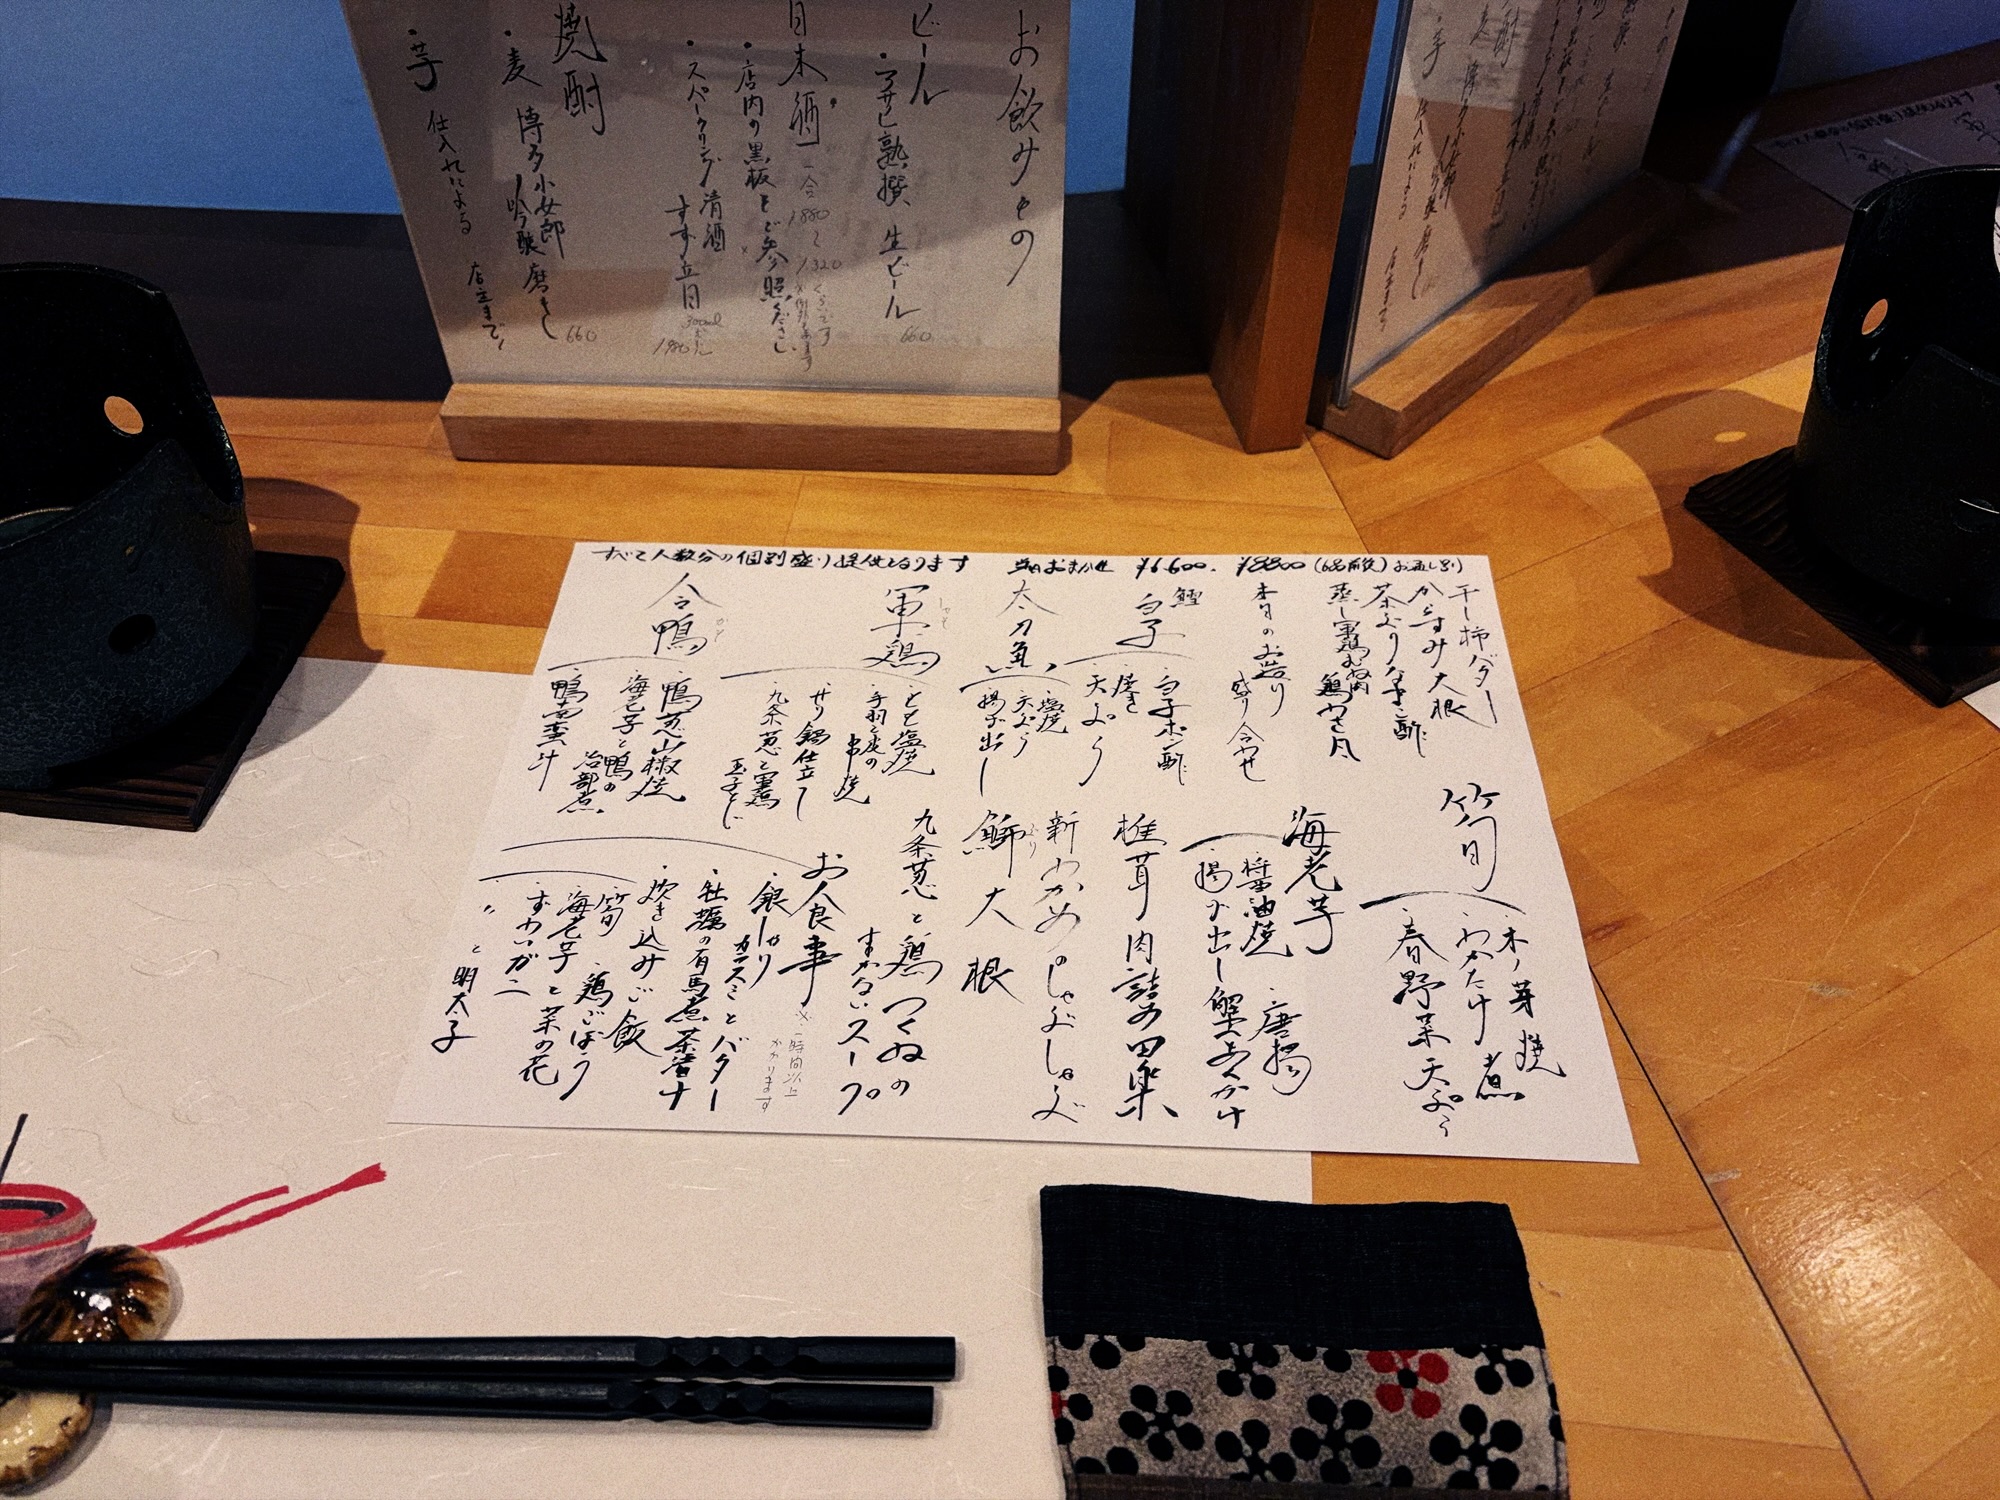 お飲みもの
ビール
・アサヒ熟撰 生ビール 660
日本酒 一合
1880〜1320くらいです
・店内の黒板をご参照ください
・スパークリング 清酒
すず音 300ml
1980
焼酎
・麦 博多小女郎
吟醸 磨き 660
・芋 仕入れによる
店主まで
すべて人数分の個別盛り提供となります 当日おまかせ ¥6,600. ¥8800 (6品前後) お通し別)
干し柿バター
からすみ大根
茶ぶりなまこ酢
本日のお造り
盛り合わせ
鱈
白子
・白子ポン酢
・焼き
・天ぷら
太刀魚
・塩焼
・天ぷら
・揚げ出し
軍鶏
・もも塩焼
・手羽と皮の串焼
・せり鍋仕立て
・九条葱と軍鶏
玉子とじ
合鴨
・鴨葱山椒焼
・海老芋と鴨の
治部煮
・鴨南蛮汁
筍
・木ノ芽焼
・わかたけ煮
・春野菜天ぷら
海老芋
・唐揚
・醤油焼
・揚げ出し蟹あんかけ
椎茸肉詰め田楽
新わかめのしゃぶしゃぶ
鰤大根
九条葱と鶏つくねの
まかないスープ
お食事
※一時間以上
かかります
・銀しゃり
カラスミとバター
・牡蠣の有馬煮茶漬け
・炊き込みご飯
筍 ・鶏ごぼう
海老芋と菜の花
ずわいガニ
〃 と明太子